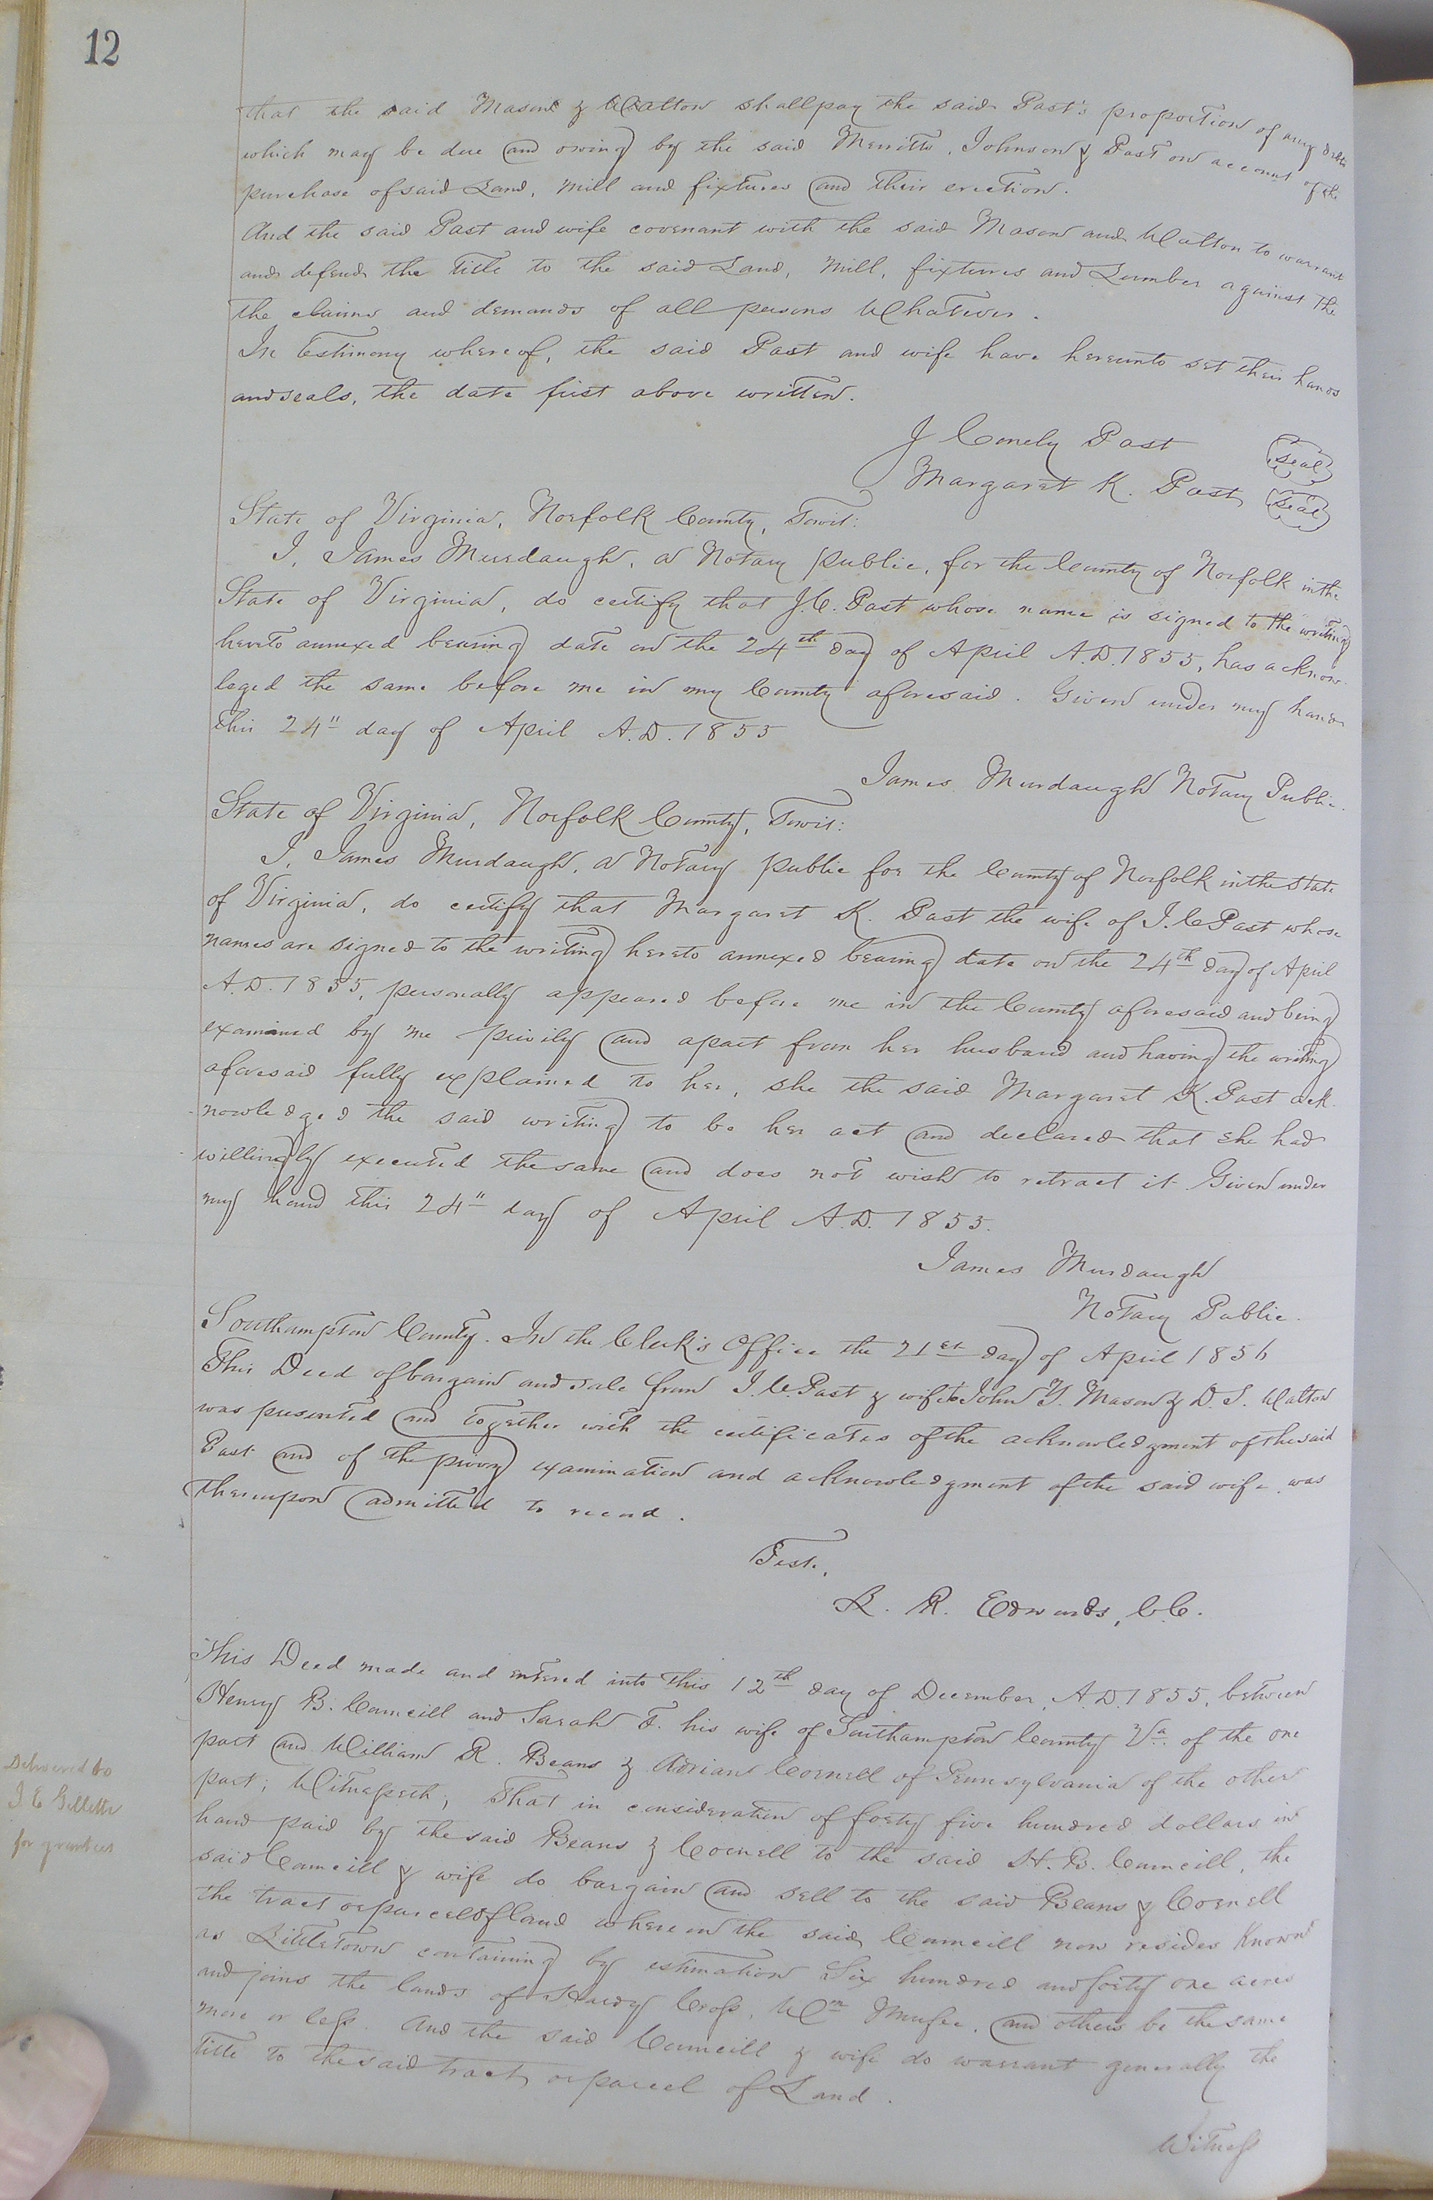 12
that the said Mason & Watton shall pay the said Past's proportion of any debts
which may be due and owing by the said Merritts, Johnson & Past on account of the
purchase of said Land, Mill and fixtures and their erection.
And the said Past and wife covenant with the said Mason and Watton to warrant
and defend the Title to the said Land, Mill, fixtures and Lumber against the
the claims and demands of all persons Whatever.
In Testimony whereof, the said Past and wife have hereunto set their hands
and seals, the date first above written.
J Conely Past (Seal)
Margaret K. Past (Seal)
State of Virginia, Norfolk County, Towit:
I, James Murdaugh, a Notary public, for the County of Norfolk in the
State of Virginia, do certify that J.C. Past whose name is signed to the writing
hereto annexed bearing date on the 24th day of April A.D. 1855, has acknow
leged the same before me in my County aforesaid. Given under my hand
this 24" day of April A.D. 1855
James Murdaugh Notary Public.
State of Virginia, Norfolk County, Towit:
I, James Murdaugh, a Notary public for the County of Norfolk in the State
of Virginia, do certify that Margaret K. Past the wife of J.C Past whose
names are signed to the writing hereto annexed bearing date on the 24th day of April
A.D. 1855, personally appeared before me in the County aforesaid and being
examined by me privily and apart from her husband and having the writing
aforesaid fully explained to her, she the said Margaret K. Past ack
nowledged the said writing to be her act and declared that she had
willingly executed the same and does not wish to retract it Given under
my hand this 24" day of April A.D. 1855.
James Murdaugh
Notary Public.
Southampton County. In the Clerk's Office the 21st day of April 1856
This Deed of bargain and sale from J.C. Past & wife to John Y. Mason & D. S. Watton
was presented and together with the certificates of the acknowledgment of the said
Past and of the privy examination and acknowledgment of the said wife, was
thereupon admitted to record.
Teste,
L. R. Edwards, C.C.
This Deed made and entered into this 12th day of December, A.D 1855, between
Henry B. Camcill and Sarah F. his wife of Southampton County Va. of the one
part and William R. Beans & Adrian Cornell of Pennsylvania of the other
part; Witnesseth, That in consideration of forty five hundred dollars in
hand paid by the said Beans & Cornell to the said H. B. Camcill, the
said Camcill & wife do bargain and sell to the said Beans & Cornell
the tract or parcel of land whereon the said Camcill now resides Known
as Littletown containing by estimation Six hundred and forty one acres
and joins the lands of Hardy Cross, Wm Mufee, and others be the same
more or less. And the said Camcill & wife do warrant generally the
Title to the said tract or parcel of Land.
Witness
Delivered to
J E Gillette
for grantees